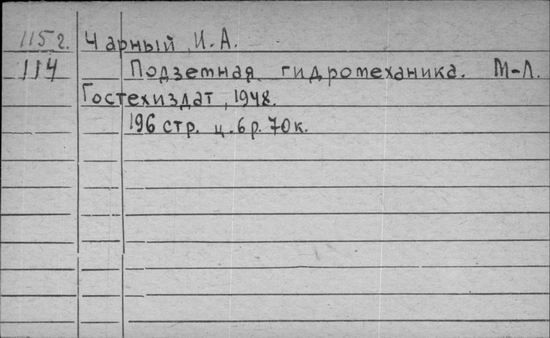 115г. Чарный И.А.
114 Подземная гидромеханика. М-Л.
Гостехиздат, 1948.
196 стр. ц. 6 р. 70 к.